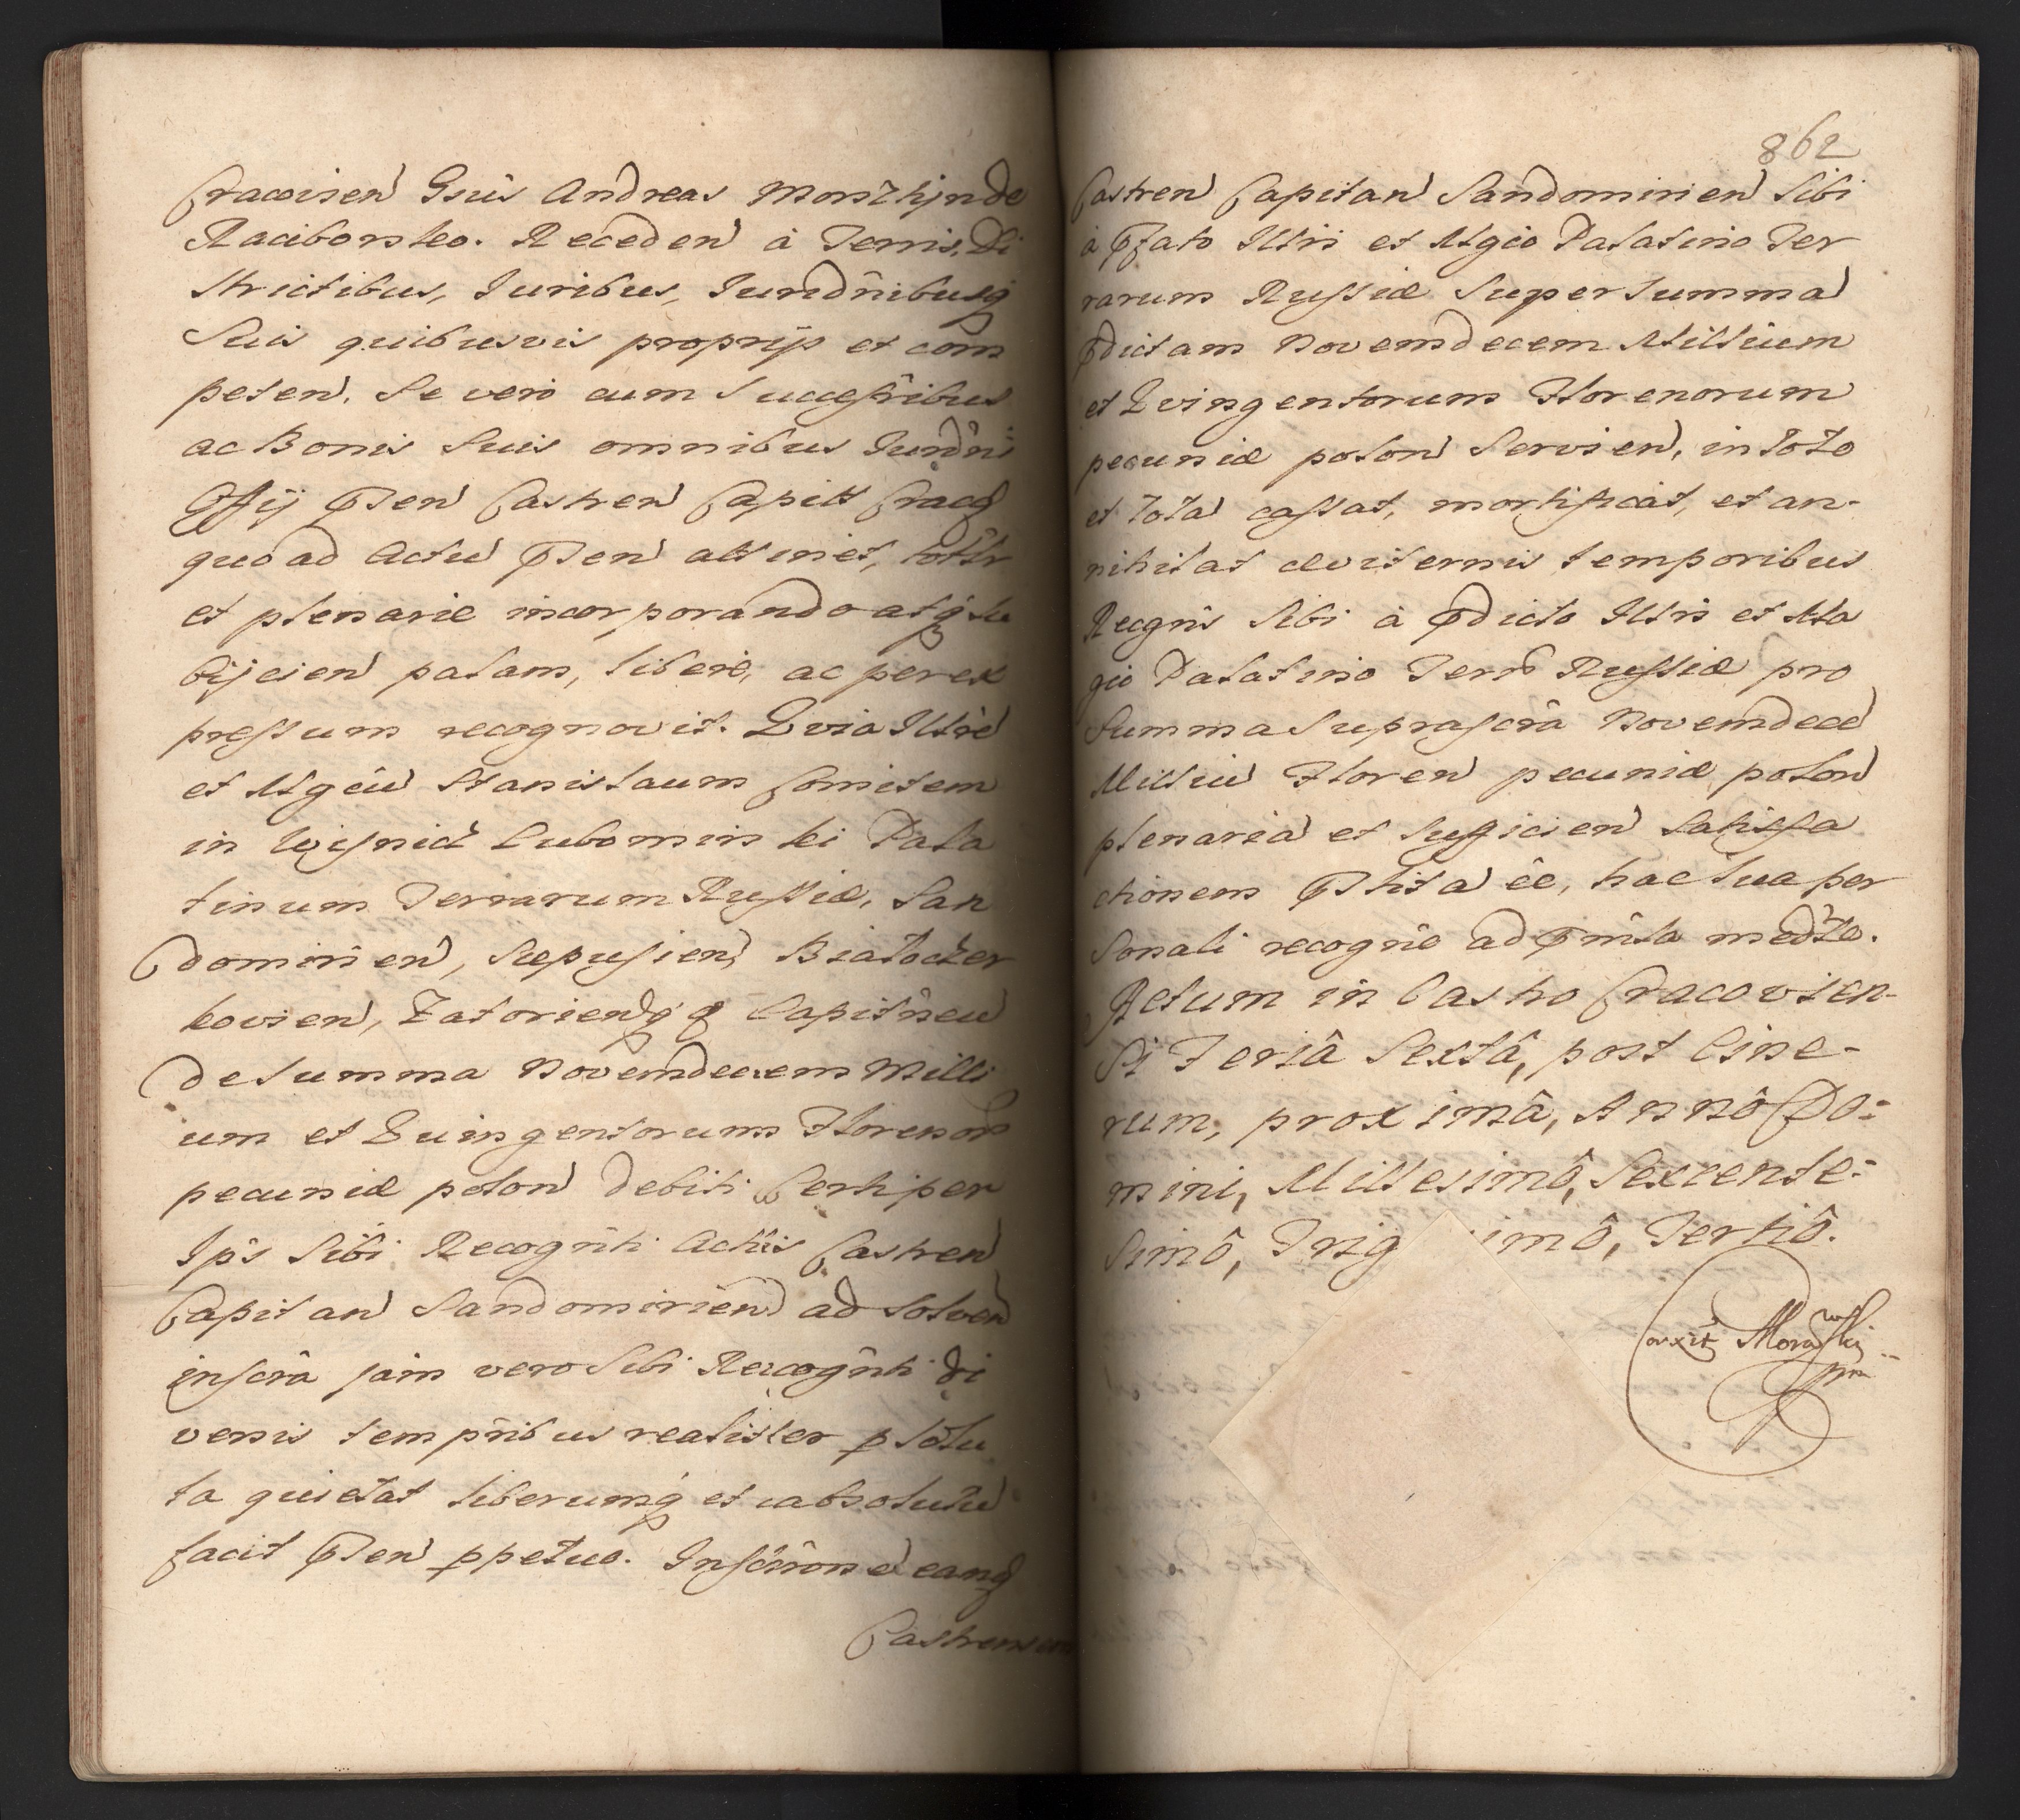 Cracovien Gnûs Andreas Morsztyn de
Raciborsko. Receden à Terris, Di
strictibus, Iuribus, Iurisdnîbusq
Suis quibusvis proprijs et com
peten. Se vero cum Succeßribus
ac Bonis Suis omnibus Iurisdni
Offij pñten Castren Capitt Crac
quoad Actu pñten attinet, tottr
et plenarie incorporando atq su
bijcien palam, libere, ac per ex
pressum recognovit. Qvia Illrê
et Mgcû Stanislaum Comitem
in Wisnicz Lubomirski Pala
tinum Terrarum Russiæ, San
domirien, Scepusien, Białocer
kovien, Zatorienq q Capitneû
de summa Novemdecem Milli
um et Quingentorum Florenor
pecuniæ polon debiti Certi per
Ips Sibi Recognîti Actis Castren
Capitan Sandomirien ad solven
inscrâ jam vero Sibi Recognîti di
versis tempribus realiter p solu
ta quietat liberumq et absolutû
facit pñten ppetuo. Inscrônê eanq
Castrensem
862
Castren Capitan Sandomirien Sibi
à pfato Illri et Mgco Palatino Ter
rarum Russiæ Super Summa
pdictam Novemdecem Millium
et Qvingentorum Florenorum
pecuniæ polon Servien, in toto
et tota cassat, mortificat, et an-
nihilat æviternis temporibus
Recgnîs Sibi à pdicto Illri et Ma
gco Palatino Terr Russiæ pro
Summa Suprascrâ Novemdece
Milliû Floren pecuniæ polon
plenaria et sufficien satisfa
ctionem pstita êe, hac sua per
sonali recogne ad pmissa medte.
Actum in Castro Cracovien-
si Feriâ Sextâ, post Cine-
rum, proximâ, Annô Do:
mini, Millesimô, Sexcente:
simô, Trig imô, Tertiô.
Corxit Morawski
mp